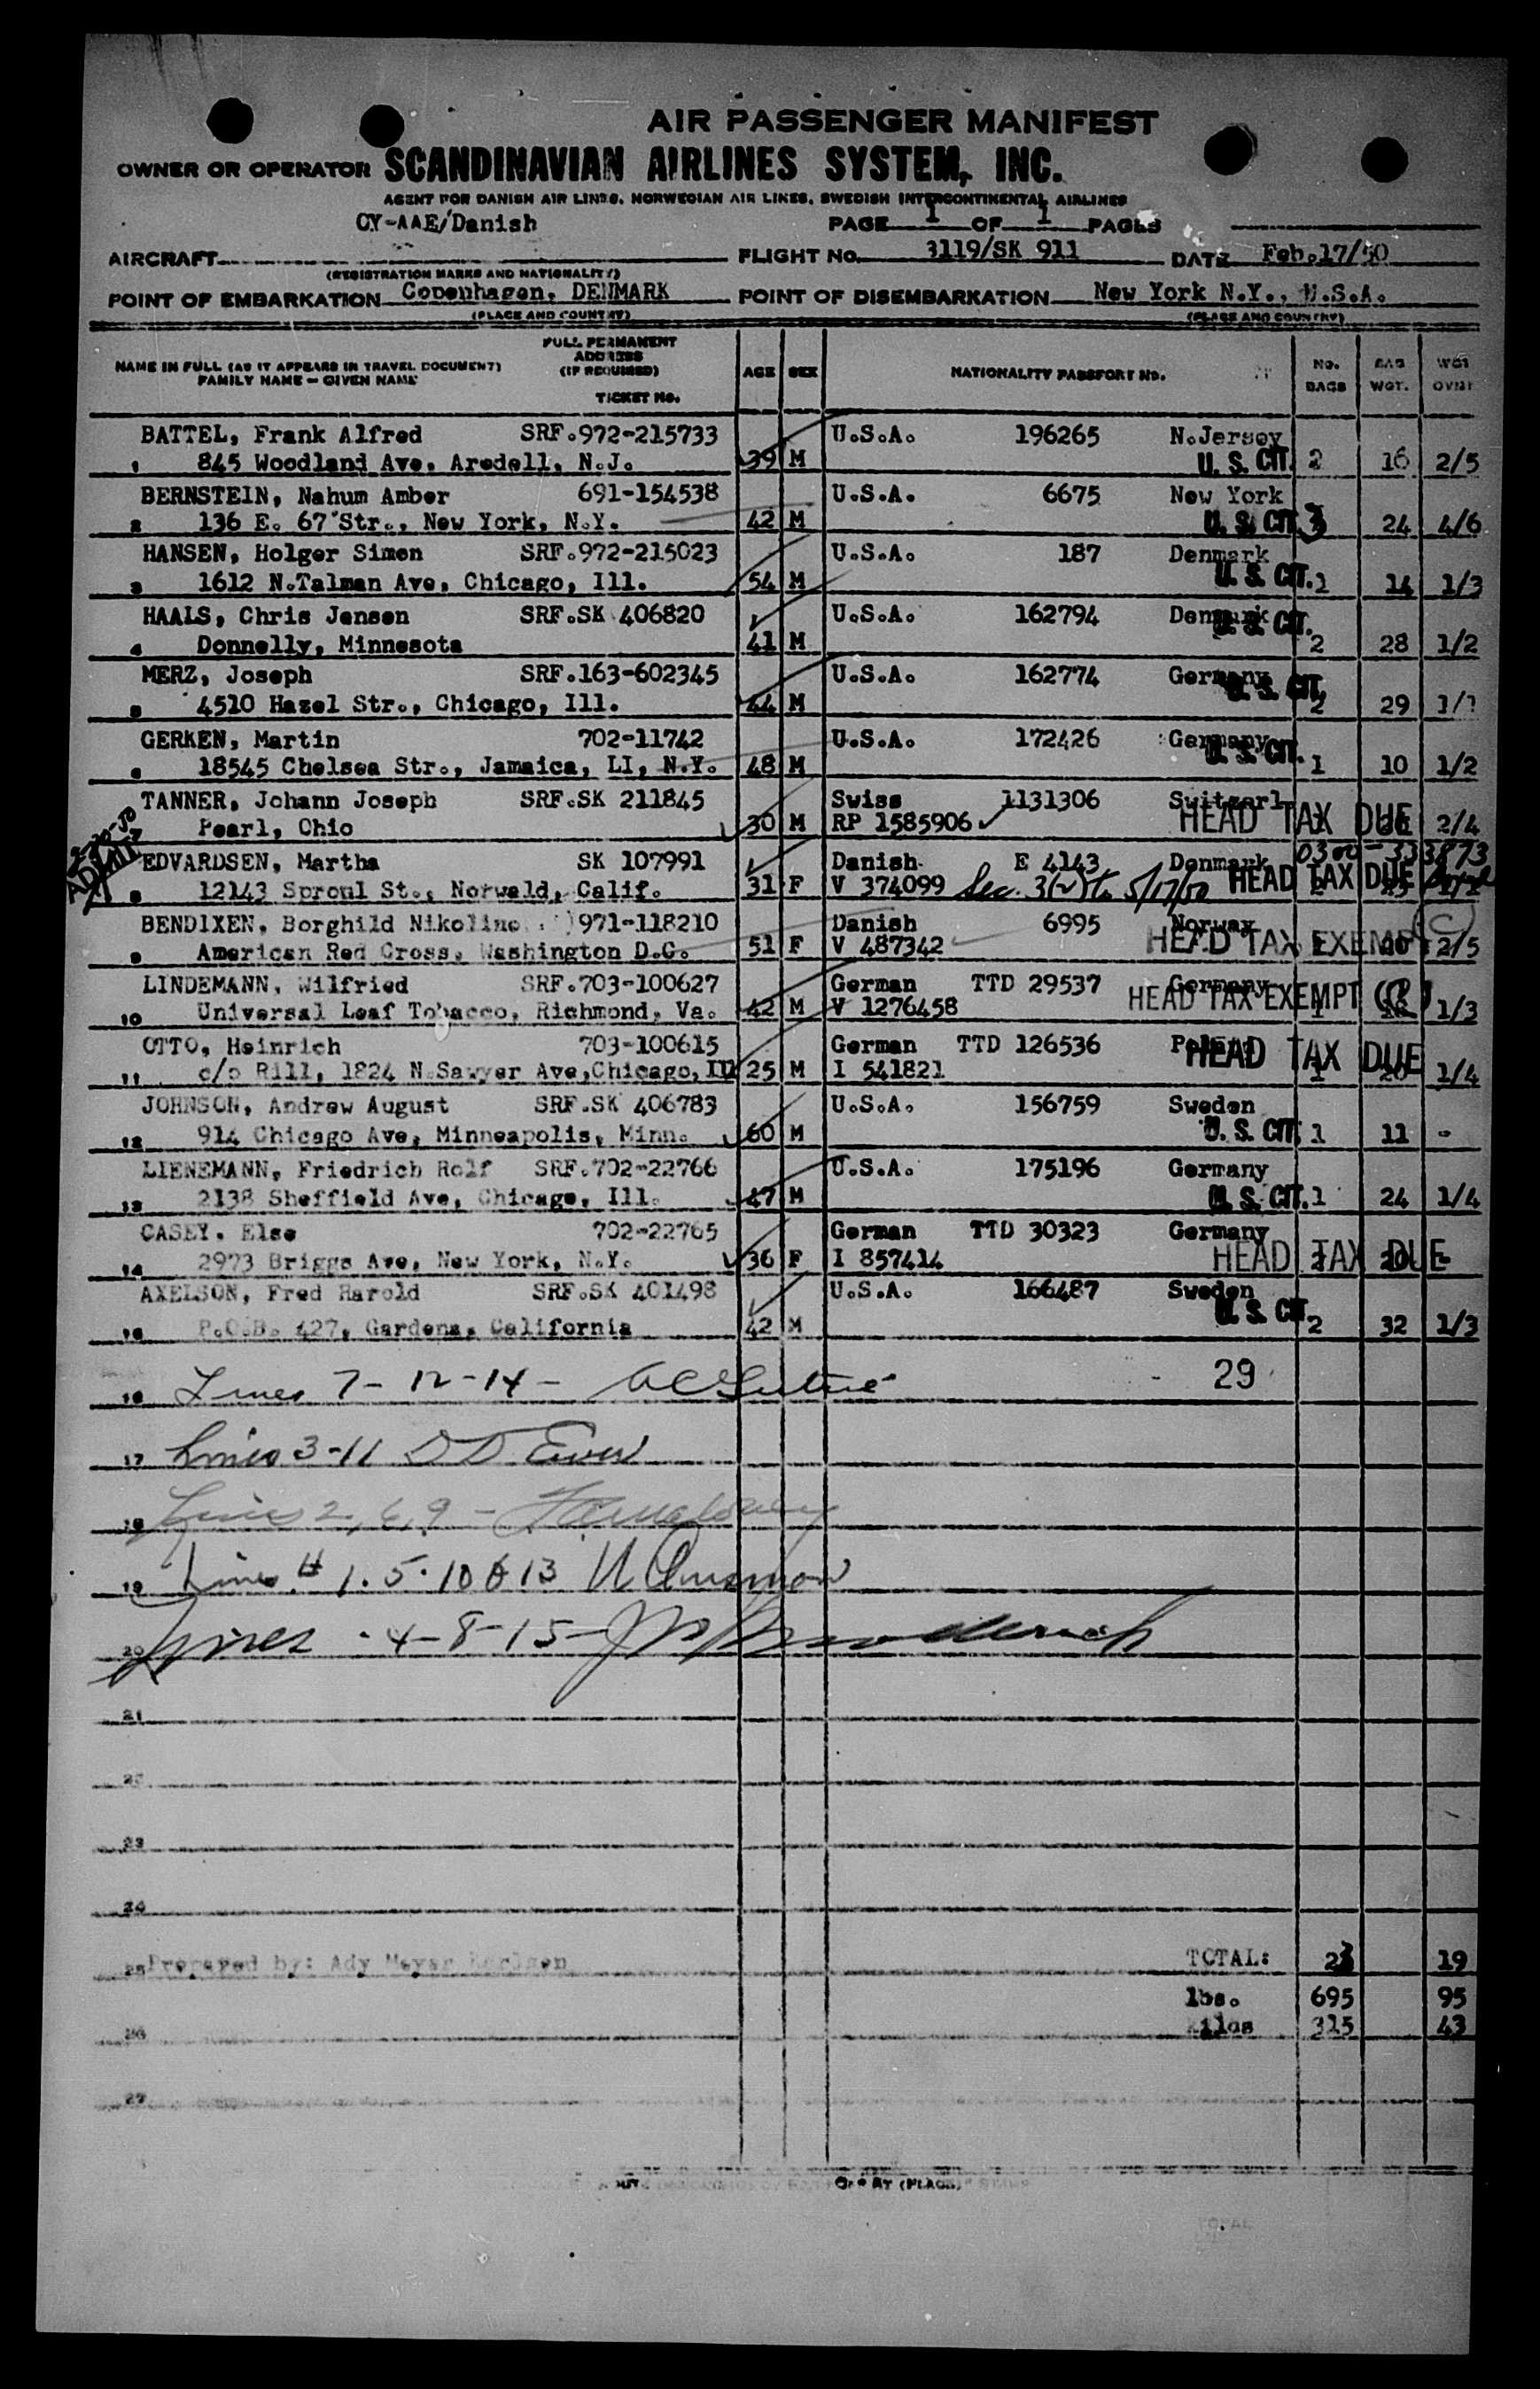 AIR PASSENGER MANIFEST
OWNER OR OPERATOR SCANDINAVIAN AIRLINES SYSTEM, INC.
AGENT FOR DANISH AIR LINES, NORWEGIAN AIR LINES, SWEDISH INTERCONTINENTAL AIRLINES
OY-AAE/Danish PAGE 1 OF 1 PAGES
AIRCRAFT FLIGHT No. 3119/SK 911 DATE Feb.17/50
(REGISTRATION MARKS AND NATIONALITY)
POINT OF EMBARKATION Copenhagen, DENMARK POINT OF DISEMBARKATION New York N.Y., U.S.A.
(PLACE AND COUNTRY) (PLACE AND COUNTRY)
NAME IN FULL (AS IT APPEARS IN TRAVEL DOCUMENT) FAMILY NAME – GIVEN NAME FULL PERMANENT ADDRESS (IF REQUIRED) TICKET No. AGE SEX NATIONALITY PASSPORT No. No. BAGS BAG WGT. WGT
BATTEL, Frank Alfred SRF.972-215733 U.S.A. 196265 N.Jersey
1 845 Woodland Ave. Aredell, N.J. 39 M U. S. CIT. 2 16 2/5
BERNSTEIN, Nahum Amber 691-154538 U.S.A. 6675 New York
2 136 E. 67 Str., New York, N.Y. 42 M U. S. CIT. 3 24 4/6
HANSEN, Holger Simen SRF.972-215023 U.S.A. 187 Denmark
3 1612 N.Talman Ave, Chicago, Ill. 54 M U. S. CIT. 1 14 1/3
HAALS, Chris Jensen SRF.SK 406820 U.S.A. 162794 Denmark
4 Donnelly, Minnesota 41 M U. S. CIT. 2 28 1/2
MERZ, Joseph SRF.163-602345 U.S.A. 162774 Germany
5 4510 Hazel Str., Chicago, Ill. 44 M U. S. CIT. 2 29 1/1
GERKEN, Martin 702-11742 U.S.A. 172426 Germany
6 18545 Chelsea Str., Jamaica, LI, N.Y. 48 M U. S. CIT. 1 10 1/2
TANNER, Johann Joseph SRF.SK 211845 Swiss 1131306 Switzerl
Pearl, Ohio 30 M RP 1585906 HEAD TAX DUE 2/4
EDVARDSEN, Martha SK 107991 Danish E 4143 Denmark
8 12143 Sproul St., Norwald, Calif. 31 F V 374099 Sec. 3(2) to 5/17/50 HEAD TAX DUE
BENDIXEN, Borghild Nikoline 971-118210 Danish 6995 Norway
9 American Red Cross, Washington D.C. 51 F V 487342 HEAD TAX EXEMPT (C) 2/5
LINDEMANN, Wilfried SRF.703-100627 German TTD 29537 Germany
10 Universal Leaf Tobacco, Richmond, Va. 42 M V 1276458 HEAD TAX EXEMPT 1/3
OTTO, Heinrich 703-100615 German TTD 126536
11 c/o Rill, 1824 N Sawyer Ave,Chicago, Ill 25 M I 541821 HEAD TAX DUE 1 20 1/4
JOHNSON, Andrew August SRF.SK 406783 U.S.A. 156759 Sweden
12 914 Chicago Ave, Minneapolis, Minn. 60 M U. S. CIT. 1 11 -
LIENEMANN, Friedrich Rolf SRF.702-22766 U.S.A. 175196 Germany
13 2138 Sheffield Ave, Chicago, Ill. 47 M U. S. CIT. 1 24 1/4
CASEY, Else 702-22765 German TTD 30323 Germany
14 2973 Briggs Ave, New York, N.Y. 36 F I 857414 HEAD TAX DUE
AXELSON, Fred Harold SRF.SK 401498 U.S.A. 166487 Sweden
15 P.O.B. 427, Gardena, California 42 M U. S. CIT. 2 32 1/3
16 Lines 7-12-14- 29
17 Lines 3-11 D D
18 Lines 2, 6, 9 -
19 Lines # 1.5.10 & 13
20 Lines -4-8-15-
21
22
23
24
25 Prepared by: Ady Meyer TOTAL: 23 19
lbs. 695 95
26 kilos 315 43
27